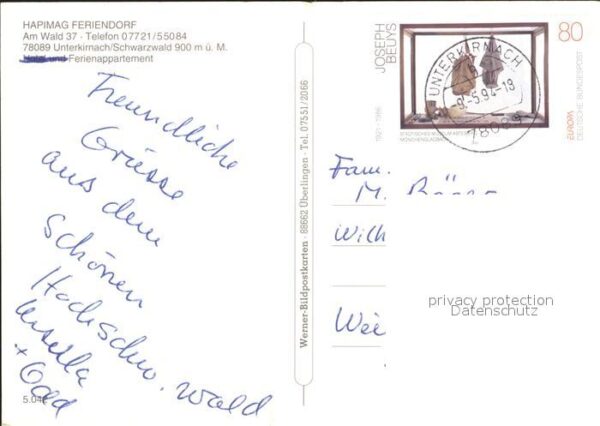 HAPIMAG FERIENDORF
Am Wald 37 - Telefon 07721/55084
78089 Unterkirnach/Schwarzwald 900 m ü. M.
Hotel und Ferienappartement
Freundliche
Grüsse
aus dem
schönen
Hochschw. wald
Ursula
+
5.04
Werner-Bildpostkarten · 88662 Überlingen · Tel. 07551/2066
JOSEPH
BEUYS
1921-1986
80
EUROPA
DEUTSCHE BUNDESPOST
MÖNCHENGLADBACH
UNTERKIRNACH
-5.94-18
78089
Fam.
M.
Wilh
Wei
privacy protection
Datenschutz